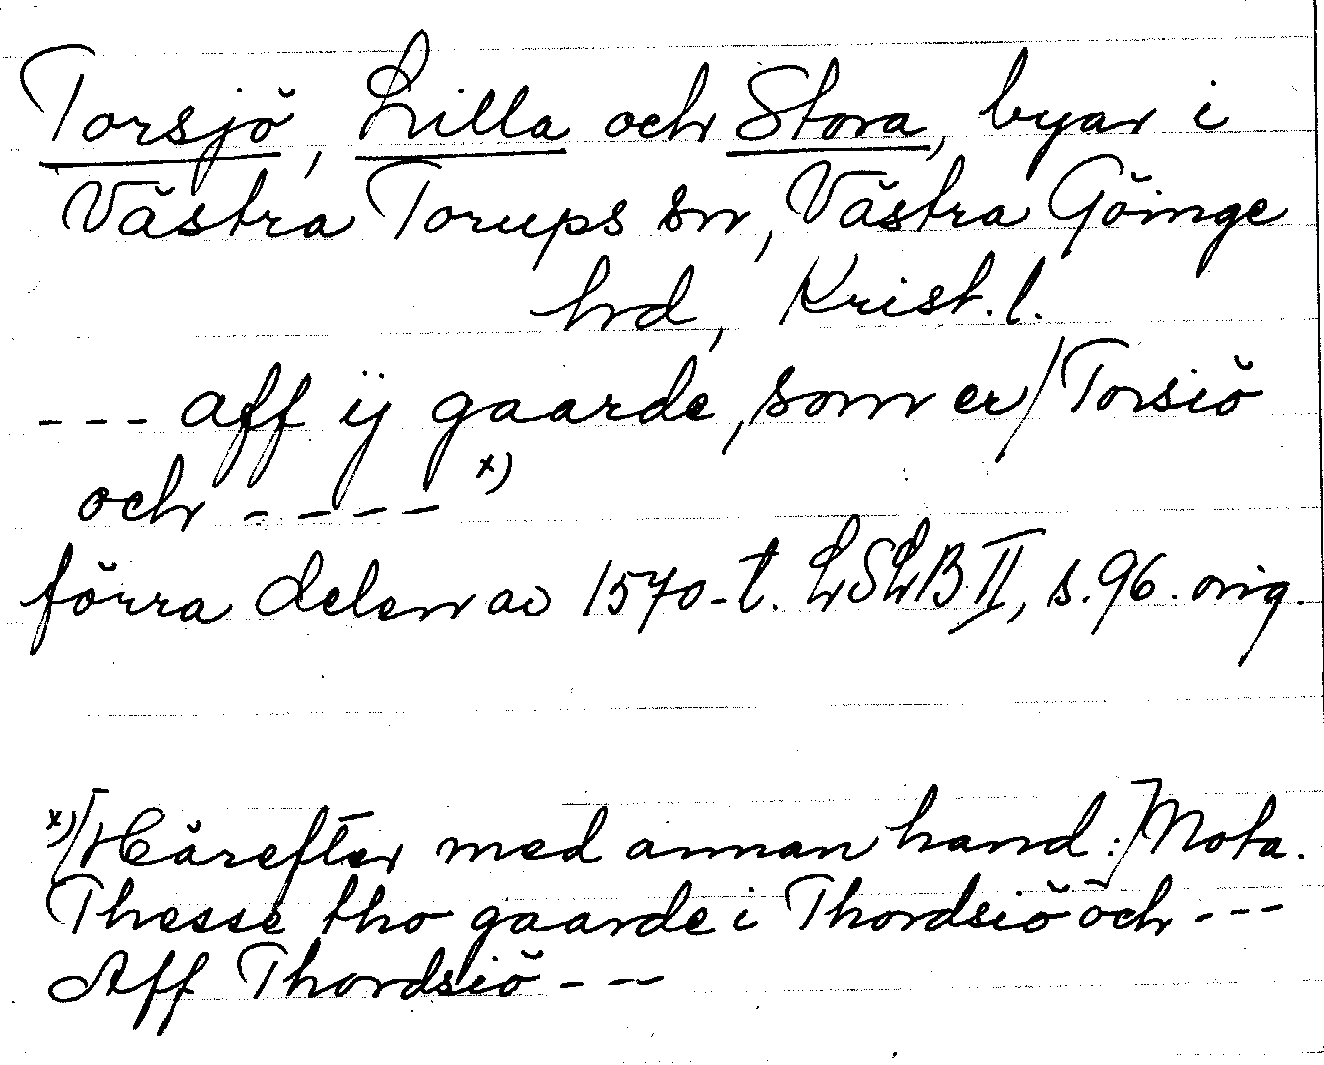 Torsjö, Lilla och Stora, byar i
Västra Torups sn, Västra Göinge
hd, Krist. l.
--- aff ij gaarde, som er / Torsiö
och ---- x)
förra delen av 1570-t. LSLB II, s. 96. orig.
x) [Härefter med annan hand:] Nota.
Thesse tho gaarde i Thordsiö och ---
Aff Thordsiö ---